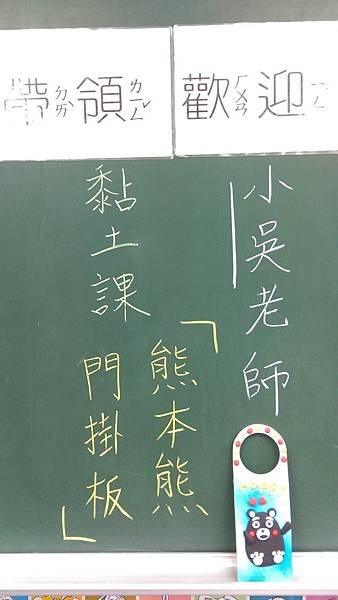 歡ㄏㄨㄢ迎ㄧㄥˊ
小吳老師
帶ㄉㄞˋ領ㄌㄧㄥˇ
「熊本熊
門掛板」
黏土課